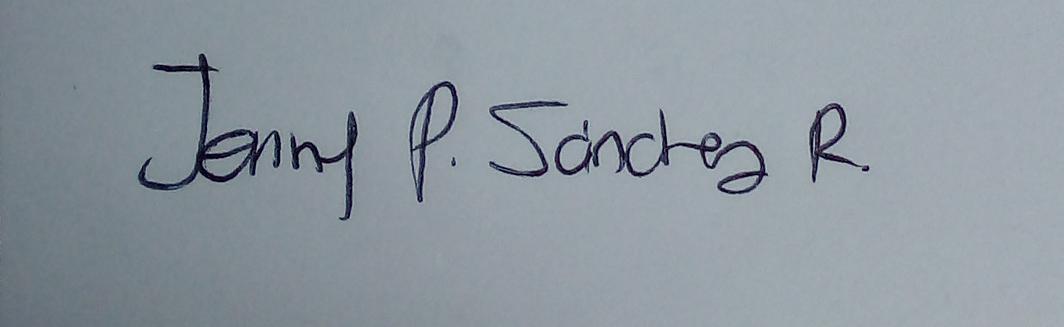 Jenny P. Sánchez R.